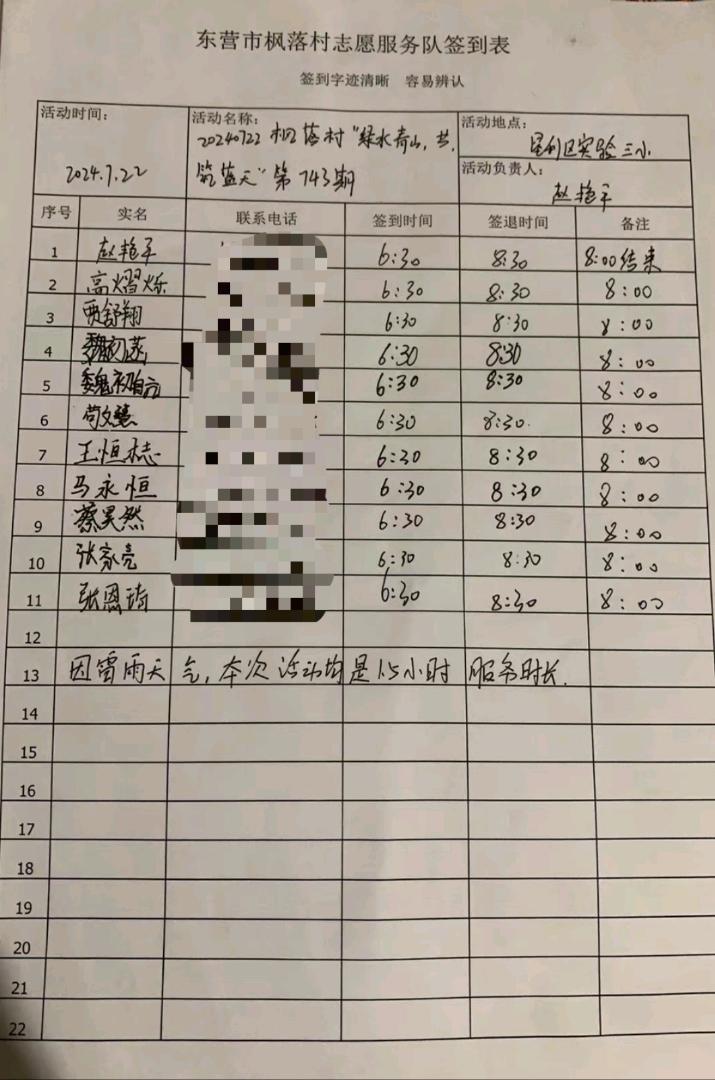 东营市枫落村志愿服务队签到表
签到字迹清晰 容易辨认
活动时间：
2024.7.22
活动名称：
20240722 枫落村“绿水青山，共
筑蓝天”第743期
活动地点：
垦利区实验三小
活动负责人：
赵艳平
序号 实名 联系电话 签到时间 签退时间 备注
1 赵艳平 6:30 8:30 8:00结束
2 高熠烁 6:30 8:30 8:00
3 贾舒翔 6:30 8:30 8:00
4 魏初 6:30 8:30 8:00
5 魏初 6:30 8:30 8:00
6 苟文慧 6:30 8:30. 8:00
7 王恒 6:30 8:30 8:00
8 马永恒 6:30 8:30 8:00
9 蔡昊然 6:30 8:30 8:00
10 张家亮 6:30 8:30 8:00
11 张恩 6:30 8:30 8:00
12
13 因雷雨天气，本次活动均是1.5小时服务时长.
14
15
16
17
18
19
20
21
22